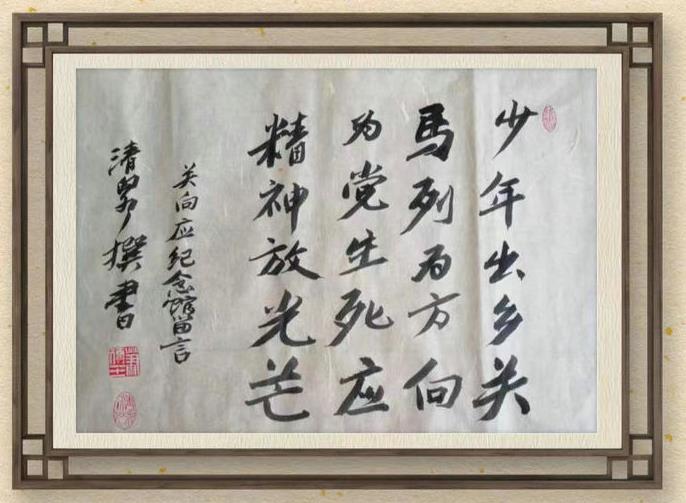 少年出乡关
馬列为方向
为党生死应
精神放光芒
关向应纪念馆留言
撰書